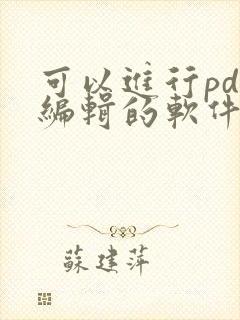 可以進行pd
編輯的軟件
蘇建萍